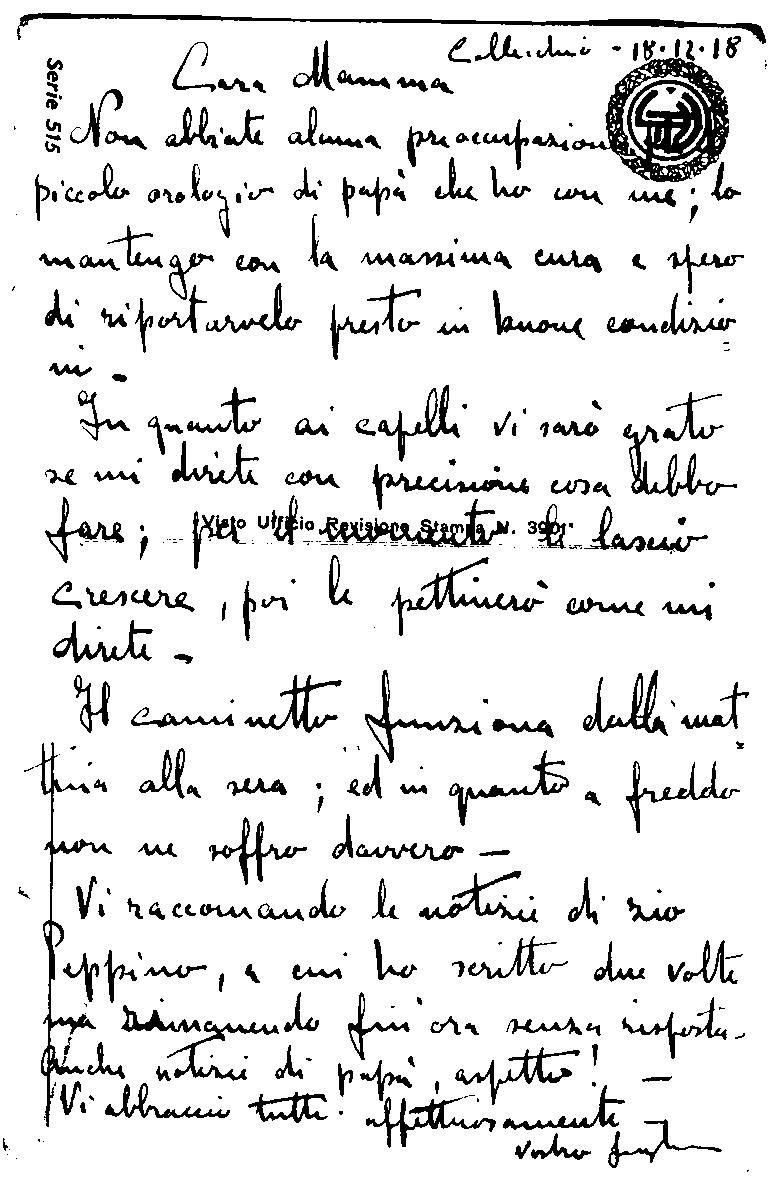 Collecchio - 18.12.18
Serie 515
Cara Mamma
Non abbiate alcuna preoccupazione pel
piccolo orologio di papà che ho con me; lo
mantengo con la massima cura e spero
di riportarvelo presto in buone condizio
ni.-
In quanto ai capelli vi sarò grato
se mi direte con precisione cosa debbo
Visto Ufficio Revisione Stampa N. 3901
fare; per il momento li lascio
crescere, poi le pettinerò come mi
direte.-
Il caminetto funziona dalla mat
tina alla sera; ed in quanto a freddo
non ne soffro davvero —
Vi raccomando le notizie di zio
Peppino, a cui ho scritto due volte
ma rimanendo fin'ora senza risposta.
Anche notizie di papà, aspetto! —
Vi abbraccio tutti affettuosamente —
vostro